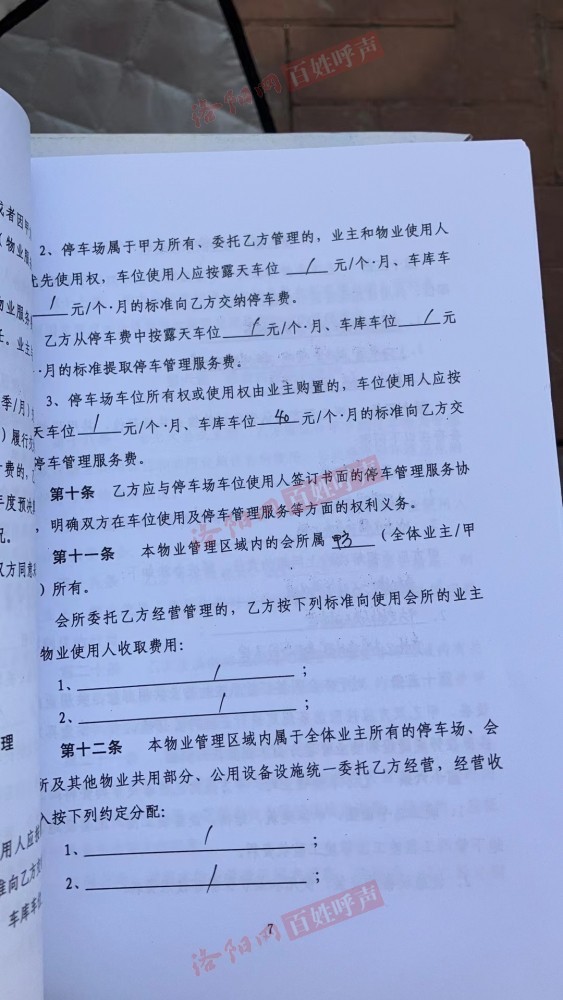 洛阳网 百姓呼声
或者因甲
物业服
2、停车场属于甲方所有、委托乙方管理的，业主和物业使用人
优先使用权，车位使用人应按露天车位 / 元/个·月、车库车
/ 元/个·月的标准向乙方交纳停车费。
乙方从停车费中按露天车位 / 元/个·月、车库车位 / 元
·月的标准提取停车管理服务费。
3、停车场车位所有权或使用权由业主购置的，车位使用人应按
天车位 / 元/个·月、车库车位 40 元/个·月的标准向乙方交
停车管理服务费。
第十条 乙方应与停车场车位使用人签订书面的停车管理服务协
，明确双方在车位使用及停车管理服务等方面的权利义务。
洛阳网 百姓呼声
第十一条 本物业管理区域内的会所属 甲方 （全体业主/甲
）所有。
会所委托乙方经营管理的，乙方按下列标准向使用会所的业主
物业使用人收取费用：
1、 / ；
2、 / ；
第十二条 本物业管理区域内属于全体业主所有的停车场、会
所及其他物业共用部分、公用设备设施统一委托乙方经营，经营收
入按下列约定分配：
1、 / ；
2、 / ；
7
洛阳网 百姓呼声
物业服务
任。业主
季/月）
）履行
费的，
年度预
况。
双方同意
理
用人应
准向乙方
车库车